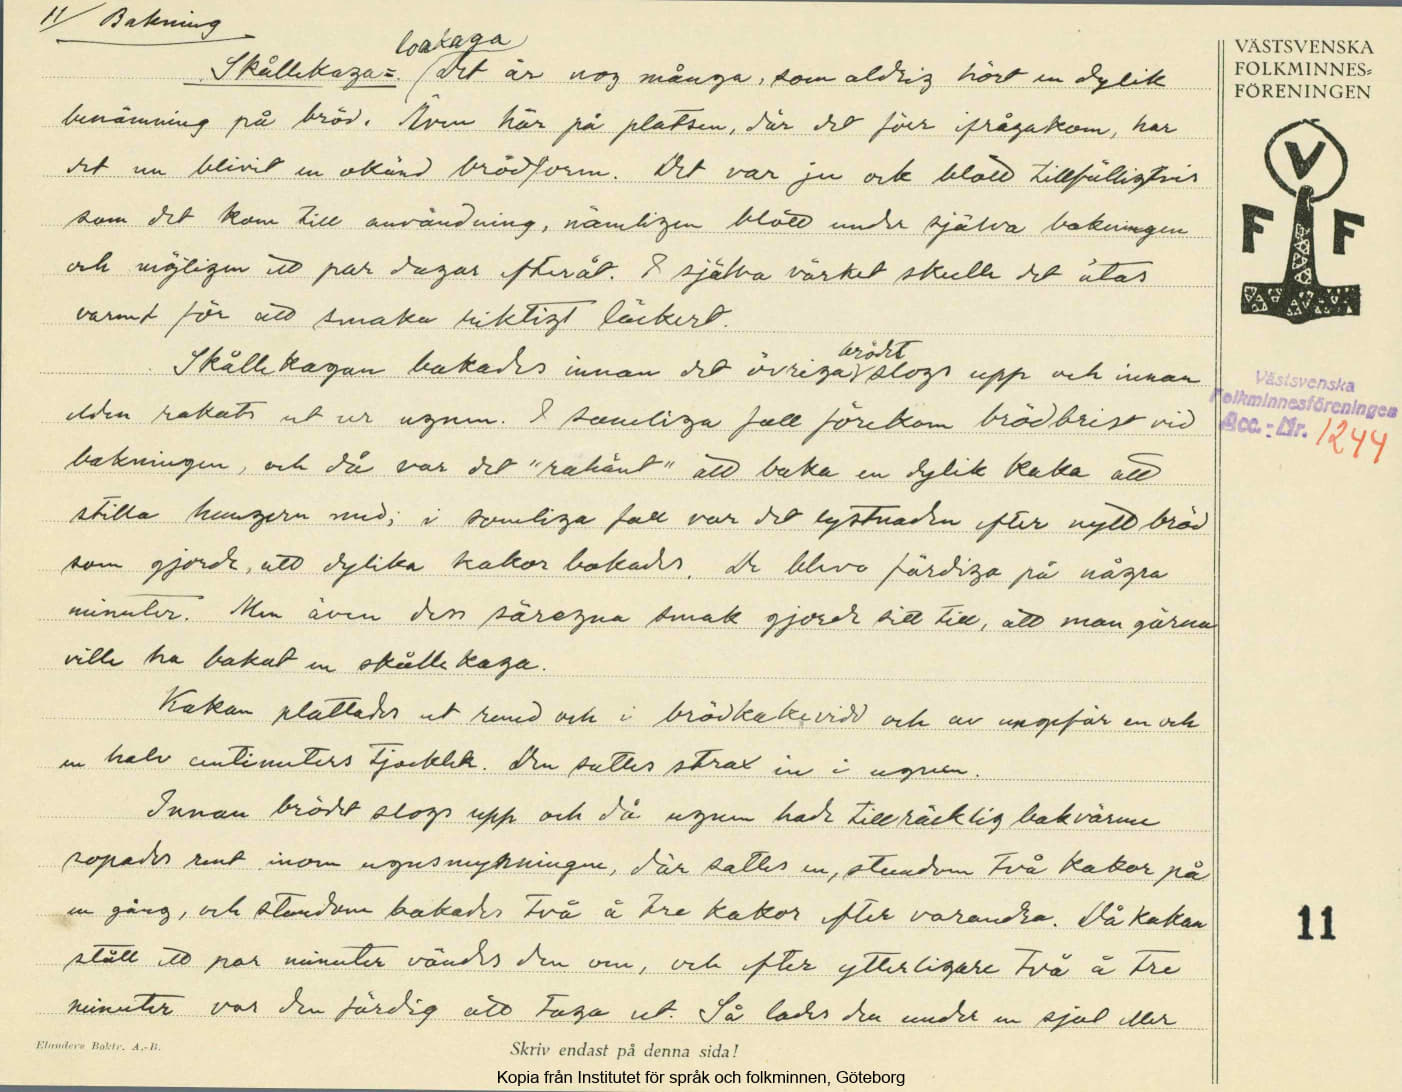 11/ Bakning
loakaga
Skållekaga = (det är nog många, som aldrig hört en dylik
benämning på bröd. Även här på platsen, där det förr ifrågakom, har
det nu blivit en okänd brödform. Det var ju ock blott tillfälligtvis
som det kom till användning, nämligen blott under själva bakningen
och möjligen ett par dagar efteråt. I själva värket skulle det ätas
varmt för att smaka riktigt läckert.
Skållekagan bakades innan det övriga brödet slogs upp och innan
elden rakats ut ur ugnen. I somliga fall förekom brödbrist vid
bakningen, och då var det "rahänt" att baka en dylik kaka att
stilla hungern med; i somliga fall var det lystnaden efter nytt bröd
som gjorde, att dylika kakor bakades. De blevo färdiga på några
minuter. Men även dess säregna smak gjorde sitt till, att man gärna
ville ha bakat en skållekaga.
Kakan plattades ut rund och i brödkakevidd och av ungefär en och
en halv centimeters tjocklek. Den sattes strax in i ugnen.
Innan brödet slogs upp och då ugnen hade tillräcklig bakvärme
sopades rent inom ugnsmynningen, där sattes en, stundom två kakor på
en gång, och stundom bakades två å tre kakor efter varandra. Då kakan
stått ett par minuter vändes den om, och efter ytterligare två å tre
minuter var den färdig att taga ut. Så lades den under en sjal eller
VÄSTSVENSKA
FOLKMINNES=
FÖRENINGEN
V
F F
Västsvenska
Folkminnesföreningen
Acc.-Nr. 1244
11
Elanders Boktr. A.-B.
Skriv endast på denna sida!
Kopia från Institutet för språk och folkminnen, Göteborg